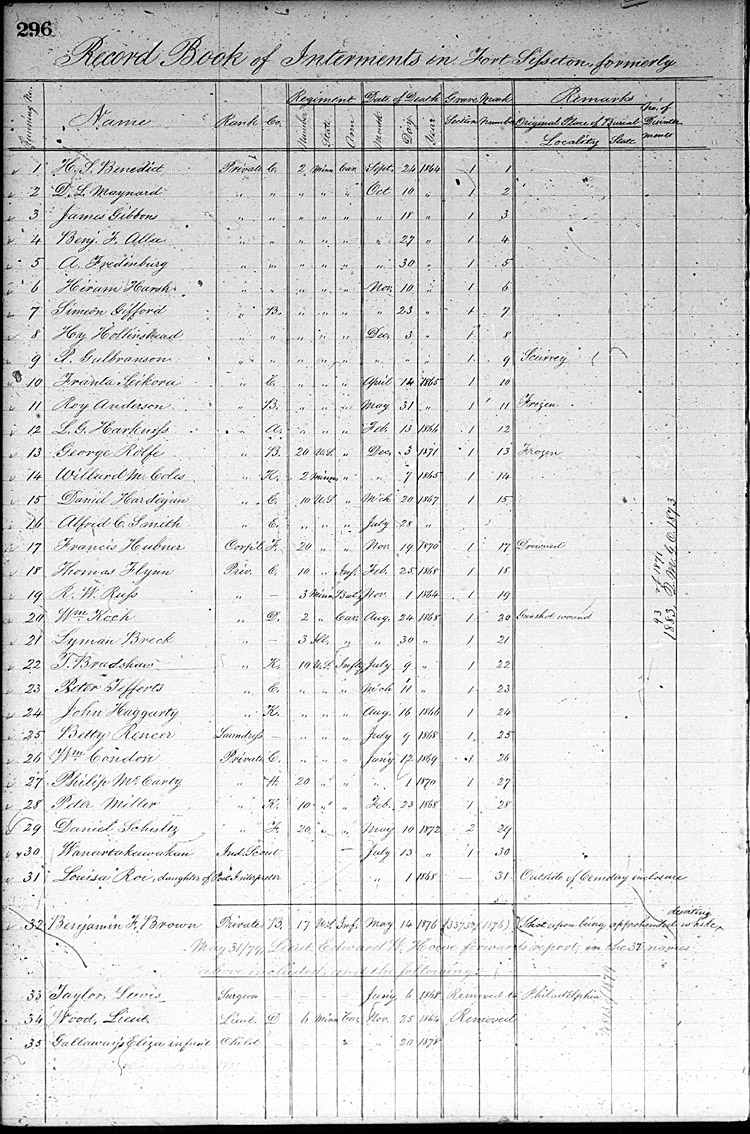 296
Record Book of Interments in Fort Sisseton, formerly
Regiment Date of Death Grave Mark Remarks No. of
Name Rank Co. Number State Arm Month Day Year Section Number Original Place of Burial Disinterments
Locality State
1 H. S. Benedict Private C. 2 Minn Cav. Sept. 24 1864 1 1
2 D. L. Maynard " " " " " Oct 10 " 1 2
3 James Gibbons " " " " " " 18 " 1 3
4 Benj. F. Alla " " " " " " 27 " 1 4
5 A. Fredinburg " " " " " " 30 " 1 5
6 Hiram Harsh " " " " " Nov. 10 " 1 6
7 Simeon Gifford " B. " " " " 23 " 1 7
8 Hy Hollinshead " " " " " Dec. 3 " 1 8
9 P. Gulbranson " " " " " " " " 1 9 Scurvey
10 Franta Seikora " C. " " " April 14 1865 1 10
11 Roy Anderson " B. " " " May 31 " 1 11 Frozen
12 L. G. Harkness " A. " " " Feb 13 1864 1 12
13 George Rolfe " B. 20 U.S. " Dec. 3 1871 1 13 Frozen
14 Willard M. Coles " K. 2 Minn " " 7 1865 1 14
15 Daniel Hardegan " C. 10 U.S. " Mch 20 1867 1 15
16 Alfred C. Smith " E. " " " July 28 " " 16
17 Francis Hubner Corp'l F. 20 " " Nov 19 1870 1 17 Drowned
18 Thomas Flynn Priv. C. 10 " Inf. Feb 25 1868 1 18
19 R. W. Russ " – 3 Minn Bat. Nov. 1 1864 1 19
20 Wm. Koch " D. 2 " Cav. Aug. 24 1868 1 20 Gunshot wound
21 Lyman Breck " – 3 Ill. " " 30 " 1 21
22 T. Bradshaw " K. 10 U.S. Infty July 9 " 1 22
23 Peter Tefforts " C. " " " Mch 11 " 1 23
24 John Haggarty " K. " " " Aug. 16 1866 1 24
25 Betty Rencer Laundress – " " " July 9 1868 1 25
26 Wm. Condon Private C. " " " Jany 12 1869 1 26
27 Philip McCarty " H. 20 " " " 1 1870 1 27
28 Peter Miller " K. 10 " " Feb. 23 1868 1 28
29 Daniel Schultz " F. 20 " " May 10 1872 2 29
30 Wanartakuwakan Ind. Scout – July 13 " 1 30
31 Louisa Roi, daughter of Post Interpreter – " 1 1868 – 31 Outside of Cemetery inclosure
93 of 1871
1883, 2 M. G. O. 1873
32 Benjamin F. Brown Private B. 17 U.S. Inf. May 14 1876 Shot upon being apprehended while
deserting
May 31/79, Lieut. Edward W. Howe forwards report, in the 31 names
above included, and the following:
33 Taylor, Lewis Surgeon – – – Jany 6 1868 Removed to Philadelphia
34 Wood, Lieut. Lieut. D 6 Minn Cav. Nov. 25 1864 Removed
35 Galloway's Eliza infant Child " " 20 1878